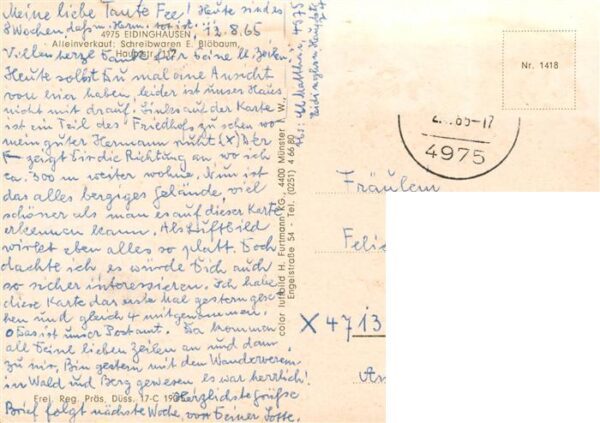 Meine liebe Tante Fee! Heute sind es
8 Wochen, daß m. Herm. tot ist. 13.8.65
4975 EIDINGHAUSEN
Alleinverkauf: Schreibwaren E. Blöbaum,
Hauptstr. 117
Vielen herzl. Dank für Deine lb. Zeilen.
Heute sollst Du mal eine Ansicht
von hier haben, leider ist unser Haus
nicht mit drauf. Links auf der Karte
ist ein Teil des Friedhofs zu sehen wo
mein guter Hermann ruht (x) Der
← zeigt Dir die Richtung an wo ich
ca. 300 m weiter wohne. Nun ist
das alles bergiges Gelände, viel
schöner als man es auf dieser Karte
erkennen kann. Als Luftbild
wirkt eben alles so platt. Doch
dachte ich, es würde Dich auch
so sicher interessieren. Ich habe
diese Karte das erste Mal gestern gese-
hen und gleich 4 mitgenommen.
o Das ist unser Postamt. Da kommen
all Deine lieben Zeilen an und dann
zu mir. Bin gestern mit dem Wanderverein
in Wald und Berg gewesen, es war herrlich!
Frei. Reg. Präs. Düss. 17-C
Herzlichste Grüße
Brief folgt nächste Woche, von Deiner Lotte.
4975
color luftbild H. Furtmann KG., 4400 Münster i. W.,
Engelstraße 54 - Tel. (0251) 4 66 80
Nr. 1418
65-17
4975
Fräulein
X 4713